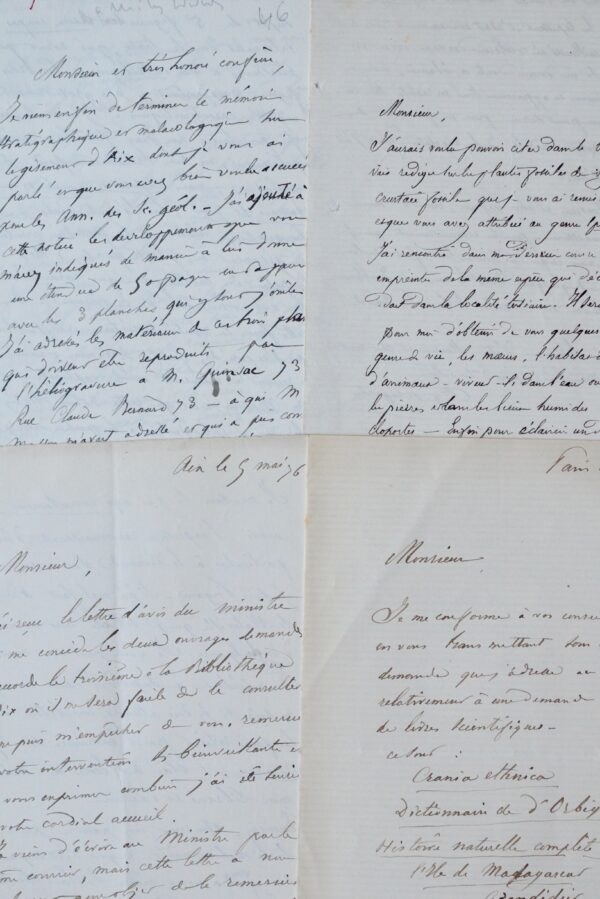 46
Monsieur et très honoré confrère,
Je viens enfin de terminer le mémoire
stratigraphique et malacologique sur
le gisement d'Aix dont je vous ai
parlé et que vous avez bien voulu
pour les Ann. des Sc. géol. - J'ai ajouté à
cette notice les developpements que vous
m'avez indiqués de manière à lui donner
une étendue de 50 pages en rapport
avec les 3 planches que j'y
J'ai adressé les matériaux de ces trois
qui doivent être reproduits par
l'héliogravure à M. Quinsac 73
Rue Claude Bernard 73 - à qui M
m'avait adressé et qui a pu
Monsieur,
J'aurais voulu pouvoir citer dans le
vais rediger sur les plantes fossiles de
crustacé fossile que je vous ai remis
et que vous avez attribué au genre
J'ai rencontré dans
empreintes de la même espèce que
dans la localité tertiaire. Il
pour moi d'obtenir de vous quelques
genre de vie, les mœurs, l'habitat
d'animaux - vivent-ils dans l'eau ou
les pierres et dans les lieux humides
cloportes - Enfin pour éclaircir un
Aix le 5 mai 76
Monsieur,
reçu la lettre d'avis du ministre
me concède les deux ouvrages demandés
accorde le troisième à la Bibliothèque
Aix où il me sera facile de le consulter
ne puis m'empêcher de vous remercier
votre intervention si bienveillante et
vous exprimer combien j'ai été
votre cordial accueil.
Je viens d'écrire au Ministre par le
courrier, mais cette lettre a
objet de le remercier
Paris
Monsieur
Je me conforme à vos
en vous transmettant sous
demande que j'adresse au
relativement à une demande
de livres scientifiques -
ce sont :
Crania ethnica
Dictionnaire de d'Orbigny
Histoire naturelle complète
l'Ile de Madagascar
Grandidier